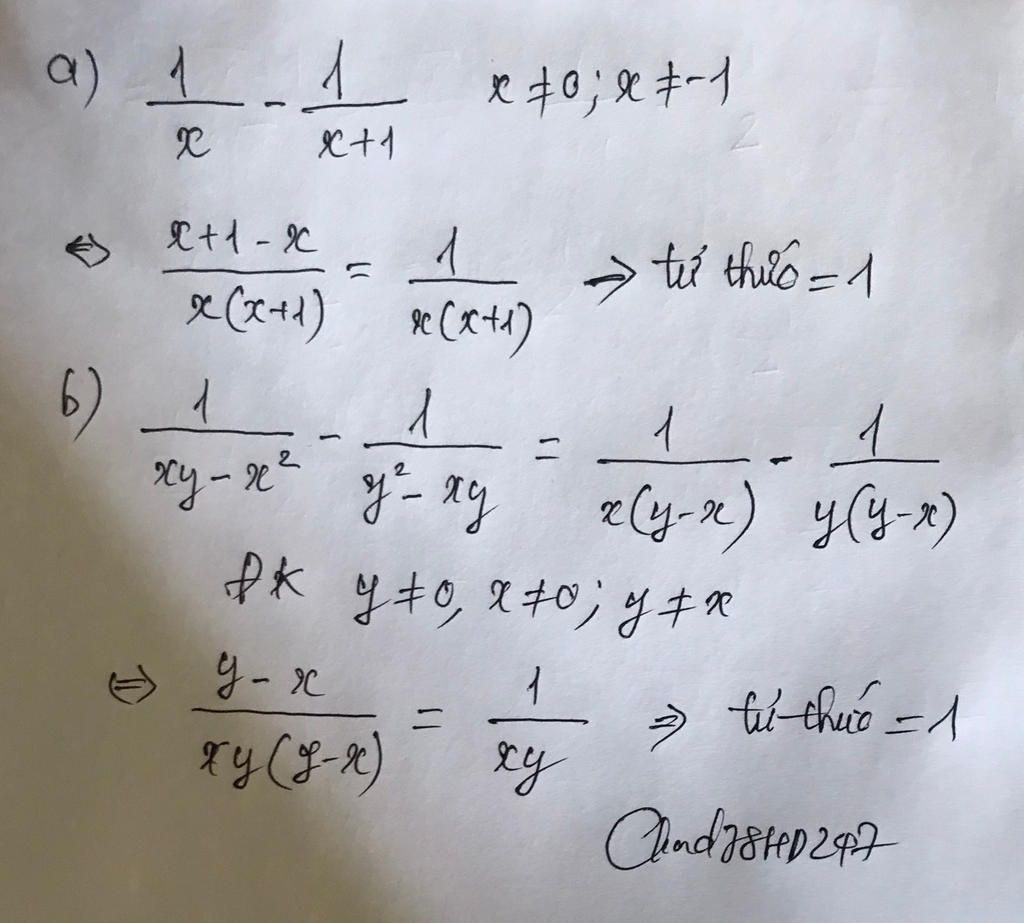 a) 1/x - 1/(x+1) x ≠ 0; x ≠ -1
⇔ (x+1-x)/(x(x+1)) = 1/(x(x+1)) → tứ thức = 1
b) 1/(xy - x²) - 1/(y² - xy) = 1/(x(y-x)) - 1/(y(y-x))
ĐK y ≠ 0, x ≠ 0; y ≠ x
⇔ (y-x)/(xy(y-x)) = 1/(xy) ⇒ tứ thức = 1